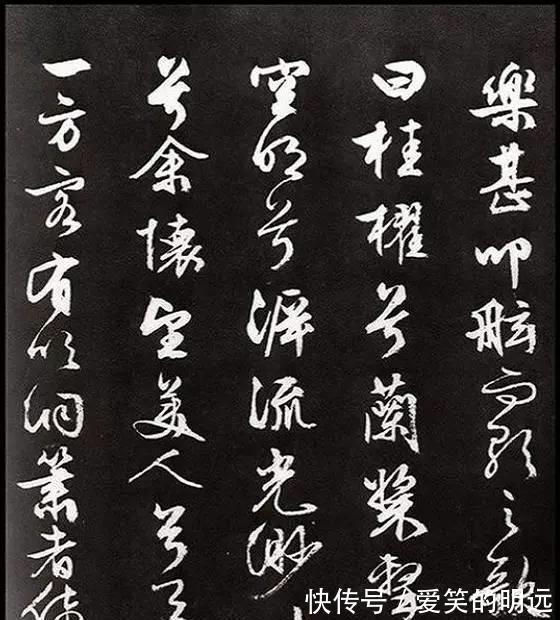 樂甚叩舷而歌之歌
曰桂櫂兮蘭槳擊
空明兮泝流光渺
兮余懷望美人兮天
一方客有吹洞簫者倚
快传号 / 爱笑的明远